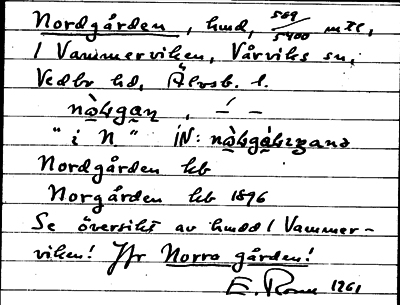 Nordgården, hmd, 569/5400 mtl,
i Vammerviken, Vårviks sn,
Vedbo hd, Älvsb. l.
" i N " IN:
Nordgården kb
Norgården kb 1896
Se översikt av hmdd i Vammer-
viken! Jfr Norra gården!
E. 1261